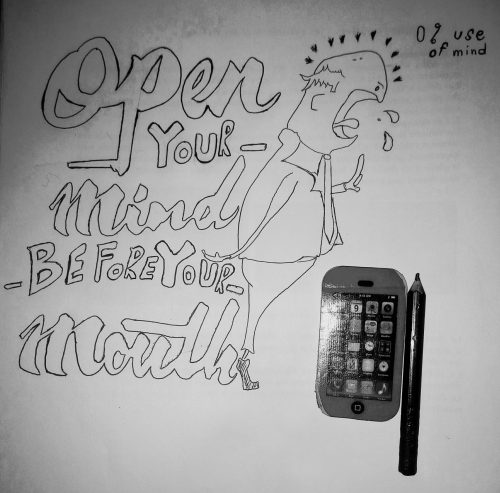 Open
YOUR -
Mind
- BEFORE YOUR -
Mouth
0% use
of mind